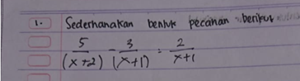 1. Sederhanakan bentuk pecahan berikut
5/(x+2) - 3/(x+1) : 2/x+1